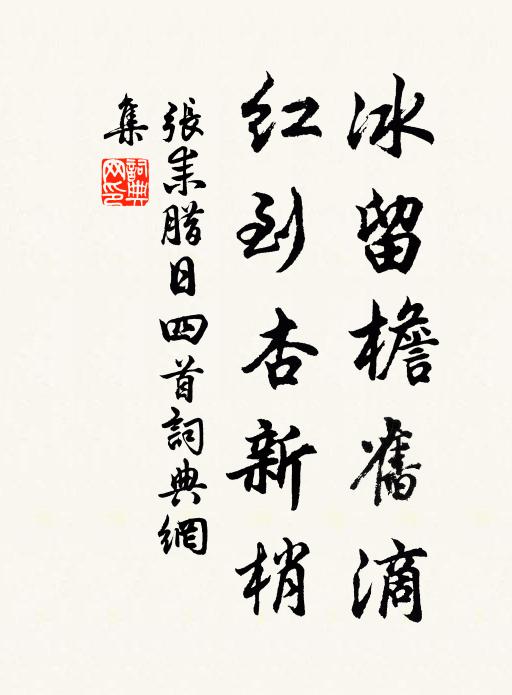 冰留檐舊滴
紅到杏新梢
張耒腊日四首詞典網
集
詞典
网印